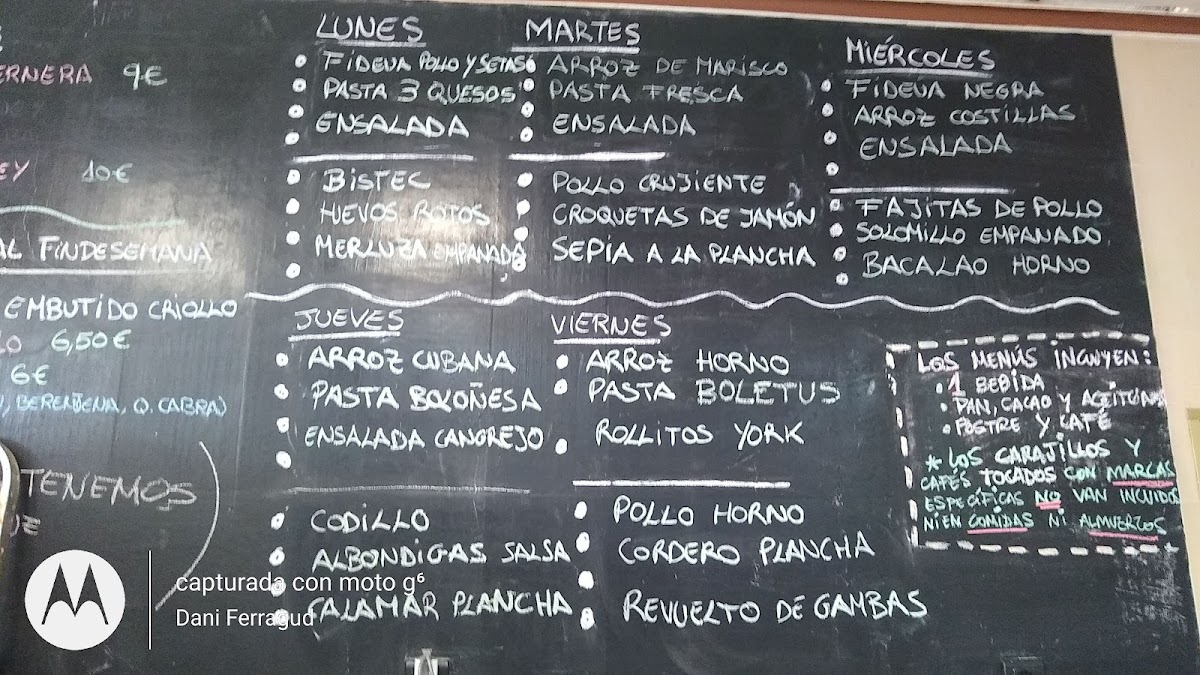 ERNERA 9€
EY 10€
AL FINDESEMANA
EMBUTIDO CRIOLLO
6,50€
6€
BERENJENA, Q. CABRA)
TENEMOS
LUNES
FIDEUA POLLO Y SETAS
PASTA 3 QUESOS
ENSALADA
BISTEC
HUEVOS ROTOS
MERLUZA EMPANADA
MARTES
ARROZ DE MARISCO
PASTA FRESCA
ENSALADA
POLLO CRUJIENTE
CROQUETAS DE JAMÓN
SEPIA A LA PLANCHA
MIÉRCOLES
FIDEUA NEGRA
ARROZ COSTILLAS
ENSALADA
FAJITAS DE POLLO
SOLOMILLO EMPANADO
BACALAO HORNO
JUEVES
ARROZ CUBANA
PASTA BOLOÑESA
ENSALADA CANGREJO
CODILLO
ALBONDIGAS SALSA
CALAMAR PLANCHA
VIERNES
ARROZ HORNO
PASTA BOLETUS
ROLLITOS YORK
POLLO HORNO
CORDERO PLANCHA
REVUELTO DE GAMBAS
LOS MENÚS INCLUYEN:
1 BEBIDA
PAN, CACAO Y ACEITUNAS
POSTRE Y CAFÉ
* LOS CARAJILLOS Y
CAFÉS TOCADOS CON MARCAS
ESPECÍFICAS NO VAN INCUIDOS
NI EN COMIDAS NI ALMUERZOS
capturada con moto g⁶
Dani Ferragud